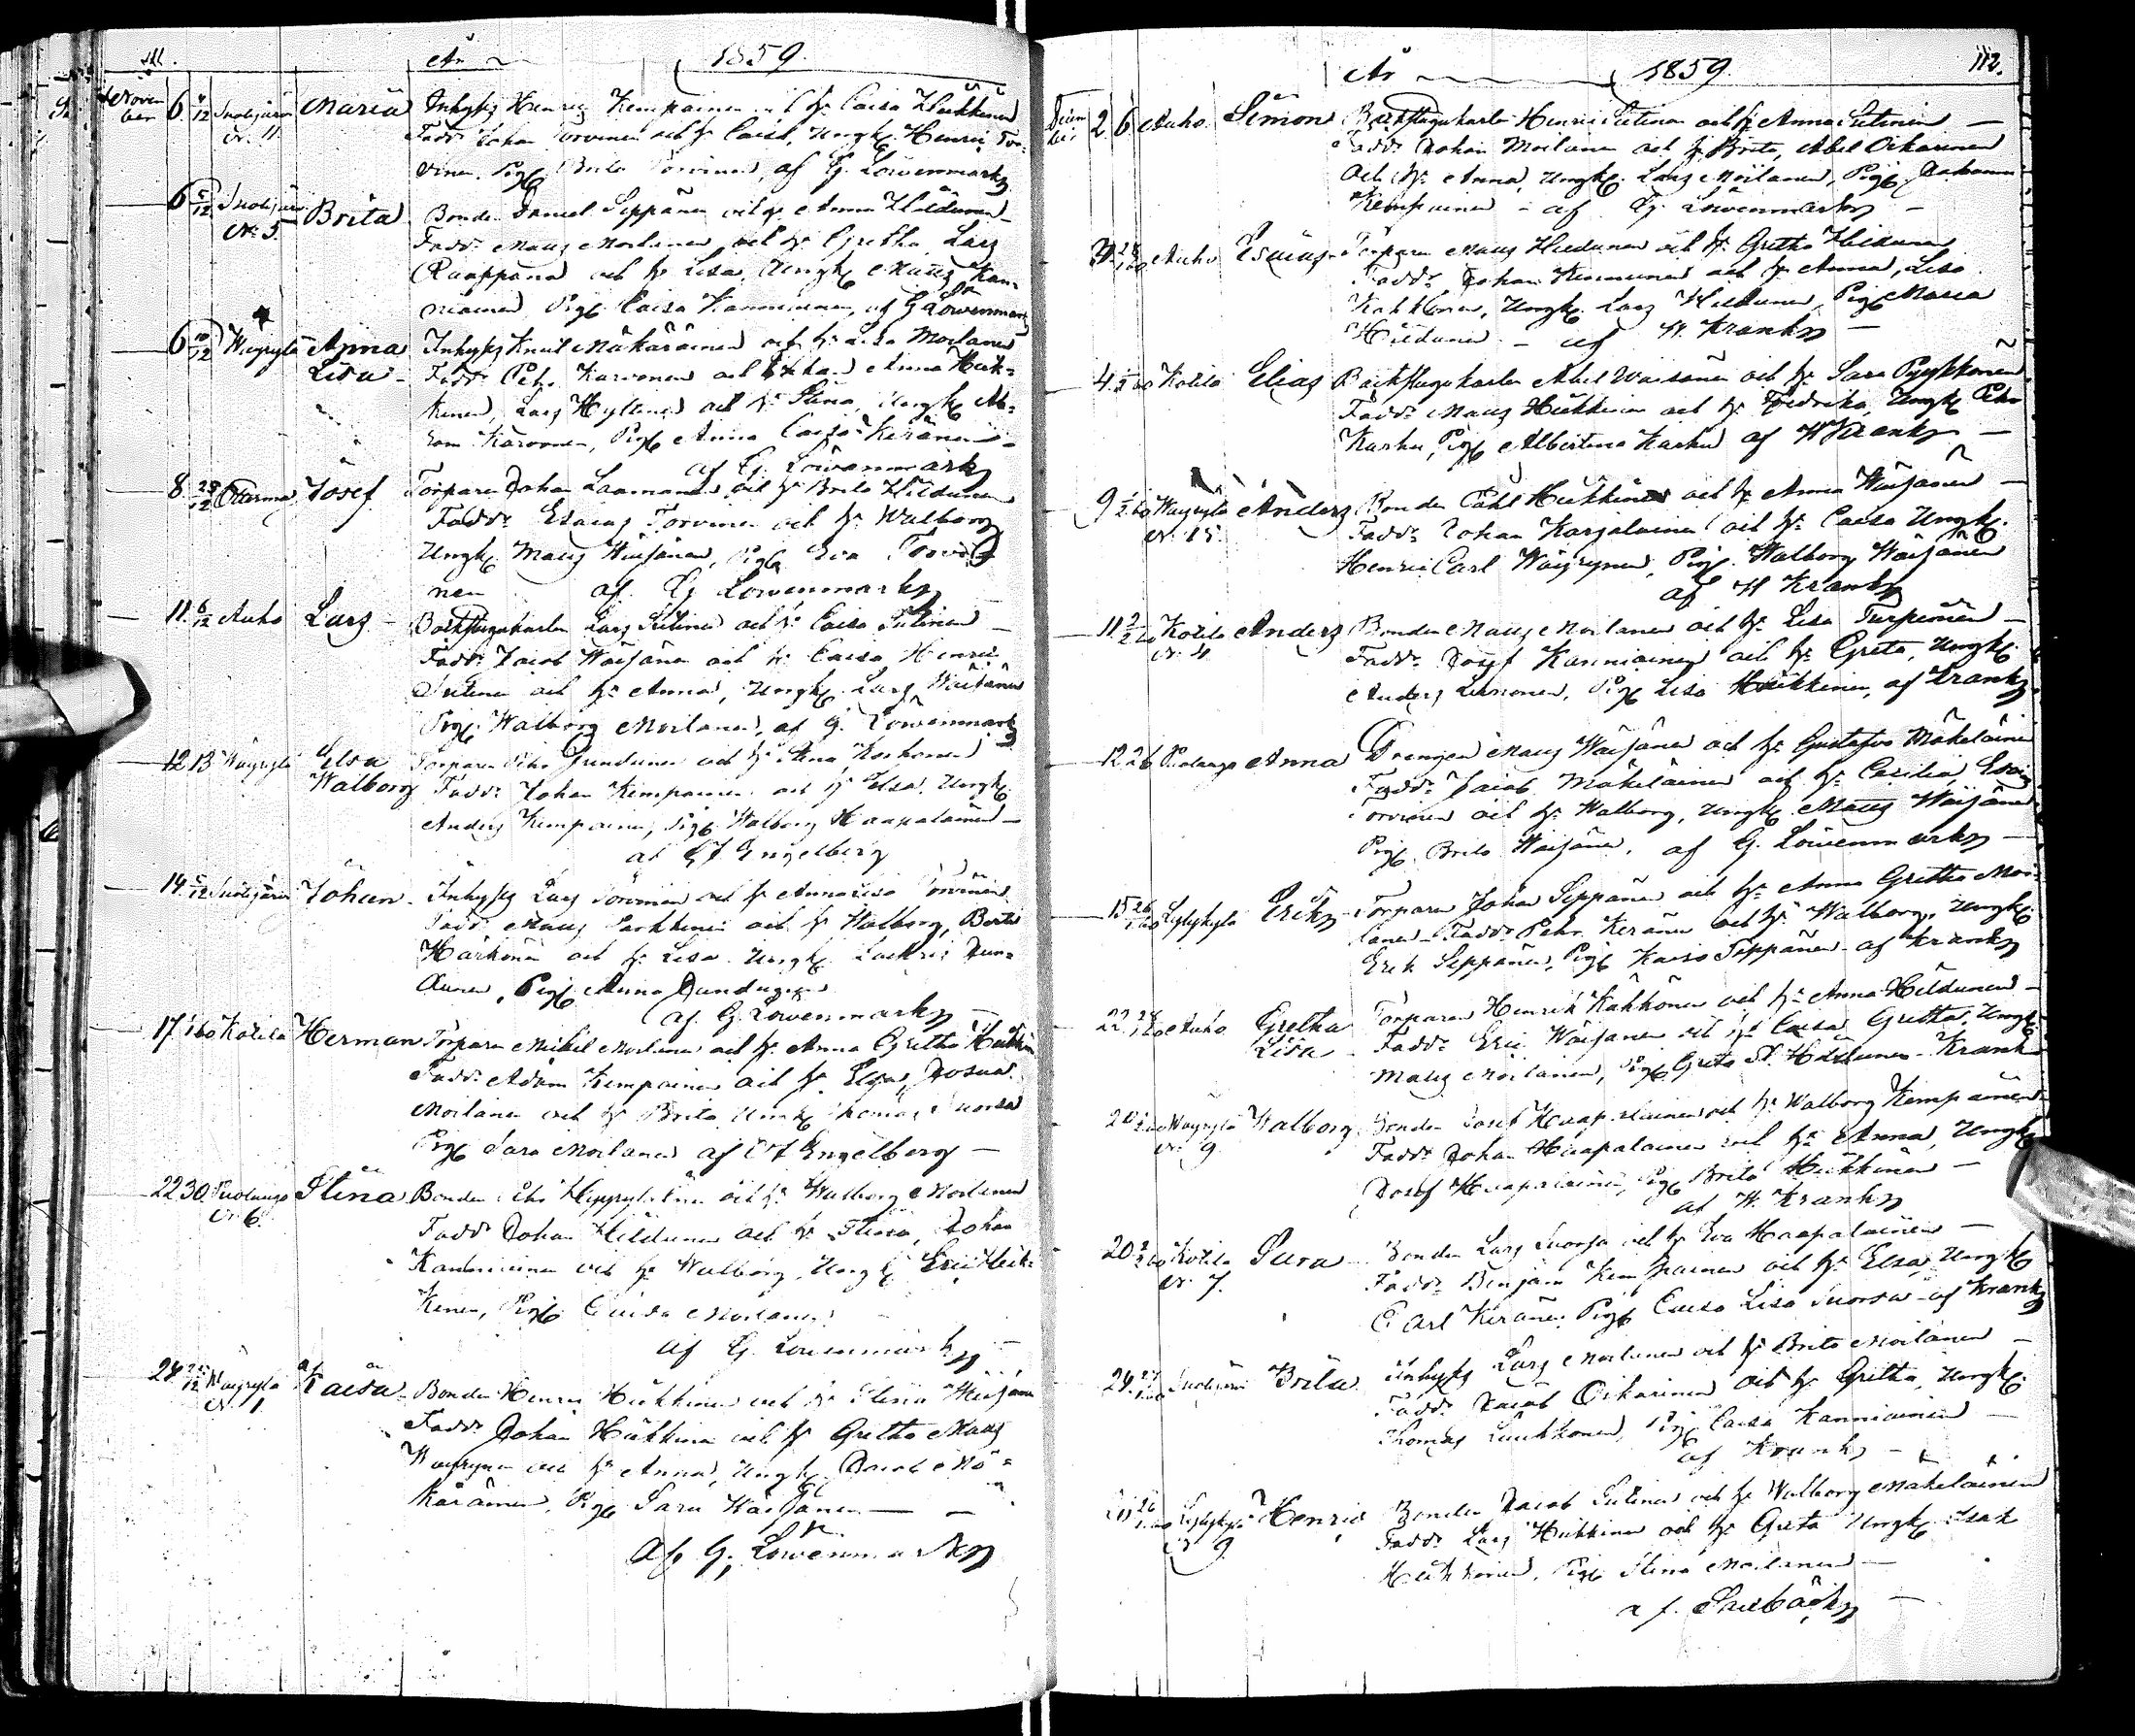 111.
År 1859.
November 6 4/12 Suolijärvi Maria Inhyss Henric Kempainen och h: Caisa Heikkinen
N. 11. Fadd: Johan Torvinen och h: Caisa, Ungk. Henric Tor-
vinen, Pig. Brita Torvinen, af G. Löwenmark
6 5/12 Suolijärvi Brita Bonden Daniel Seppänen och h: Anna Hildunen
N: 5. Fadd: Mauz Moilanen och h: Gretha, Lars
Raappana och h: Lisa, Ungk. Mauz Kan-
niainen Pig. Caisa Kanniainen, af G Löwenmark
6 10/12 Wäyrylä Anna Inhyss Knut Mäkäräinen och h: Lisa Moilanen
Lisa Fadd: Pehr Karvonen och Enkan Anna Heik-
kinen, Lars Hyttinen och h: Stina, Ungk. Ab-
ram Karvonen, Pig. Anna Caisa Keränen
af G. Löwenmark
8 28/12 Törmä Josef Torparen Johan Laamanen och h: Brita Hildunen
Fadd: Esaias Torvinen och h: Walborg
Ungk. Mauz Wäisänen, Pig. Eva Torvi-
nen af G Löwenmark
11 6/12 Auho Lars Backstugukarlen Lars Sutinen och h: Caisa Sutinen
Fadd: Jacob Wäisänen och h: Caisa, Henric
Sutinen och h: Anna, Ungk. Lars Wäisänen
Pig. Walborg Moilanen, af G. Löwenmark
12 13 Wäyrylä Elsa Torparen Pehr Jundunen och h: Anna Korhonen
Walborg Fadd: Johan Kempainen och h: Elsa, Ungk.
Anders Kempainen, Pig. Walborg Haapalainen
af Engelberg
14 5/12 Suolijärvi Johan Inhyss Lars Torvinen och h: Anna Lisa Torvinen
Fadd: Mauz Parkkinen och h: Walborg, Bertil
Härkönen och h: Lisa Ungk. Lauri Jun-
dunen, Pig. Anna Jundunen
af G. Löwenmark
17 1/60 Kotila Herman Torparen Michel Moilanen och h: Anna Gretha Heikkinen
Fadd: Adam Kempainen och h: Elsa, Josua
Moilanen och h: Brita, Ungk. Thomas Suorsa
Pig. Sara Moilanen af Engelberg
22 30 Puolango Stina Bonden Pehr och h: Walborg Moilanen
N. 6. Fadd: Johan Hildunen och h: Stina, Johan
Kanniainen och h: Walborg, Ungk. Eric Heik-
kinen, Pig. Caisa Moilanen
af G. Löwenmark
24 25/12 Wäyrylä Kaisa Bonden Henric Heikkinen och h: Stina Wäisänen
N. 1 Fadd: Johan Heikkinen och h: Gretha, Mauz
Wäyrynen och h: Anna, Ungk. Jacob Mä-
käräinen, Pig. Sara Wäisänen
Af G. Löwenmark
112.
År 1859.
December 2 6 Auho Simon Backstugukarlen Henric Sutinen och h: Anna Sutinen
Fadd: Johan Moilanen och h: Brita, Abel Oikarinen
och h: Anna, Ungk. Lars Moilanen, Pig. Johanna
Kempainen af G. Löwenmark
Auho Esaias Torparen Mauz Hildunen och h: Gretha Hildunen
Fadd: Johan Kinnunen och h: Anna, Lisa
Kähkönen, Ungk. Lars Hildunen, Pig. Maria
Hildunen af W. Krank
4 Kotila Elias Backstugukarlen Abel Waisänen och h: Sara Pyykkönen
Fadd: Mauz Heikkinen och h: Fredrika, Ungk Pehr
Karhu, Pig. Albertina Karhu af W Krank
9 Wäyrylä Anders Bonden Påhl Heikkinen och h: Anna Wäisänen
N. 15. Fadd: Johan Karjalainen och h: Caisa Ungk.
Henric Carl Wäyrynen, Pig. Walborg Wäisänen
af W Krank
11 Kotila Anders Bonden Mauz Moilanen och h: Lisa Turpeinen
N. 4 Fadd: Josef Kanniainen och h: Greta, Ungk.
Anders Leinonen, Pig. Lisa Heikkinen, af Krank
12 26 Puolango Anna Drengen Mauz Wäisänen och h: Gustafva Mäkeläinen
Fadd: Jacob Mäkeläinen och h: Cecilia, Esaias
Torvinen och h: Walborg, Ungk. Mauz Wäisänen
Pig. Brita Wäisänen, af G. Löwenmark
15 26/1 60 Lylykylä Erik Torparen Johan Seppänen och h: Anna Gretha Moi-
lanen Fadd: Pehr Keränen och h: Walborg, Ungk.
Erik Seppänen, Pig. Kaisa Seppänen af Krank
22 Auho Gretha Torparen Henrik Kähkönen och h: Anna Hildunen
Lisa Fadd: Eric Wäisänen och h: Caisa Gretha, Ungk.
Mauz Moilanen, Pig. Greta St. Hildunen Krank
20 Wäyrylä Walborg Bonden Josef Haapalainen och h: Walborg Kempainen
N. 9 Fadd: Johan Haapalainen och h: Anna, Ungk
Josef Haapalainen, Pig. Brita Heikkinen
af W. Krank
20 Kotila Sara Bonden Lars Suorsa och h: Eva Haapalainen
N. 7. Fadd: Benjam Kempainen och h: Elsa, Ungk
Carl Keränen, Pig. Caisa Lisa Suorsa af Krank
24 Suolijärvi Brita Inhyss Lars Moilanen och h: Brita Moilanen
Fadd: Jacob Oikarinen och h: Gretha, Ungk.
Thomas Luukkonen, Pig. Caisa Kanniainen
af Krank
Lylykylä Henric Bonden Jacob Sutinen och h: Walborg Mäkeläinen
N 9. Fadd: Lars Heikkinen och h: Greta Ungk. Isak
Heikkinen, Pig. Stina Moilanen
af.